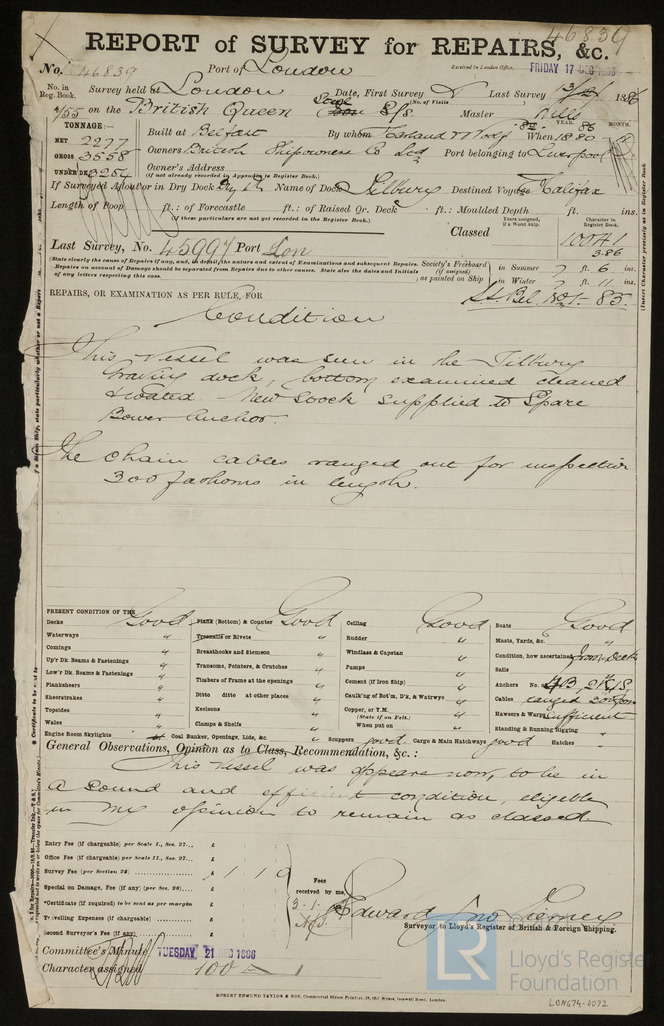 46839
REPORT of SURVEY for REPAIRS, &c.
No. 46839 Port of London Received in London Office, FRIDAY 17 DEC 1886
No. in Reg. Book. Survey held at London Date, First Survey Last Survey 13/12/ 1886
4/55 on the British Queen (No. of Visits) Master
TONNAGE:— YEAR. MONTH.
NET 2277 Built at Belfast By whom Harland & Wolff When 1880
GROSS 3558 Owners British Shipowners Co Ltd Port belonging to Liverpool
UNDER DK. 3254 Owner's Address
(If not already recorded in Appendix to Register Book.)
If Surveyed Afloat or in Dry Dock Dry Dk Name of Dock Tilbury Destined Voyage Halifax
Length of Poop ft.: of Forecastle ft.: of Raised Qr. Deck ft.: Moulded Depth ft. ins.
(If these particulars are not yet recorded in the Register Book.)
Years assigned, if a Wood Ship. Character in Register Book.
Classed 100A1
3.86
Last Survey, No. 45994 Port Lon
(State clearly the cause of Repairs if any, and, in detail, the nature and extent of Examinations and subsequent Repairs.
Repairs on account of Damage should be separated from Repairs due to other causes. State also the dates and Initials
of any letters respecting this case.
Society's Freeboard (if assigned) as painted on Ship in Summer 7 ft. 6 ins.
in Winter 7 ft. 11 ins.
REPAIRS, OR EXAMINATION AS PER RULE, FOR
Condition
This Vessel was seen in the Tilbury
Graving dock, bottom examined cleaned
& coated New Stock supplied to Spare
Bower Anchor.
The chain cables ranged out for inspection
300 fathoms in length.
PRESENT CONDITION OF THE
Decks Good Plank (Bottom) & Counter Good Ceiling Good Boats Good
Waterways " Treenails or Rivets " Rudder " Masts, Yards, &c. "
Comings " Breasthooks and Stemson " Windlass & Capstan " Condition, how ascertained from deck
Up'r Dk. Beams & Fastenings " Transoms, Pointers, & Crutches " Pumps " Sails
Low'r Dk. Beams & Fastenings " Timbers of Frame at the openings " Cement (if Iron Ship) " Anchors No. 4B, 2K, 1S.
Planksheers " Ditto ditto at other places " Caulk'ng of Bot'm, D'k, & Watrwys " Cables ranged 300 fms
Sheerstrakes " Keelsons " Copper, or Y.M. " Hawsers & Warps sufficient
Topsides " Clamps & Shelfs " (State if on Felt.)
Wales " When put on Standing & Running Rigging "
Engine Room Skylights " Coal Bunker, Openings, Lids, &c. Scuppers good Cargo & Main Hatchways good Hatches "
General Observations, Opinion as to Class, Recommendation, &c. :
This Vessel was appears now, to be in
a sound and efficient condition, eligible
in my opinion to remain as classed
Entry Fee (if chargeable) per Scale I., Sec. 27... £
Office Fee (if chargeable) per Scale II., Sec. 27... £
Survey Fee (per Section 28) £ 1 1 0
Special on Damage, Fee (if any) (per Sec. 28) £
*Certificate (if required) to be sent as per margin
Travelling Expenses (if chargeable) £
Second Surveyor's Fee (if any) £
Fees received by me,
Edward Jno
Surveyor to Lloyd's Register of British & Foreign Shipping.
Committee's Minute TUESDAY 21 DEC 1886
Character assigned 100 A 1
ROBERT EDMUND TAYLOR & SON, Commercial Steam Printers, 19, Old Street, Goswell Road, London.
LR Lloyd's Register Foundation
LON674-0072